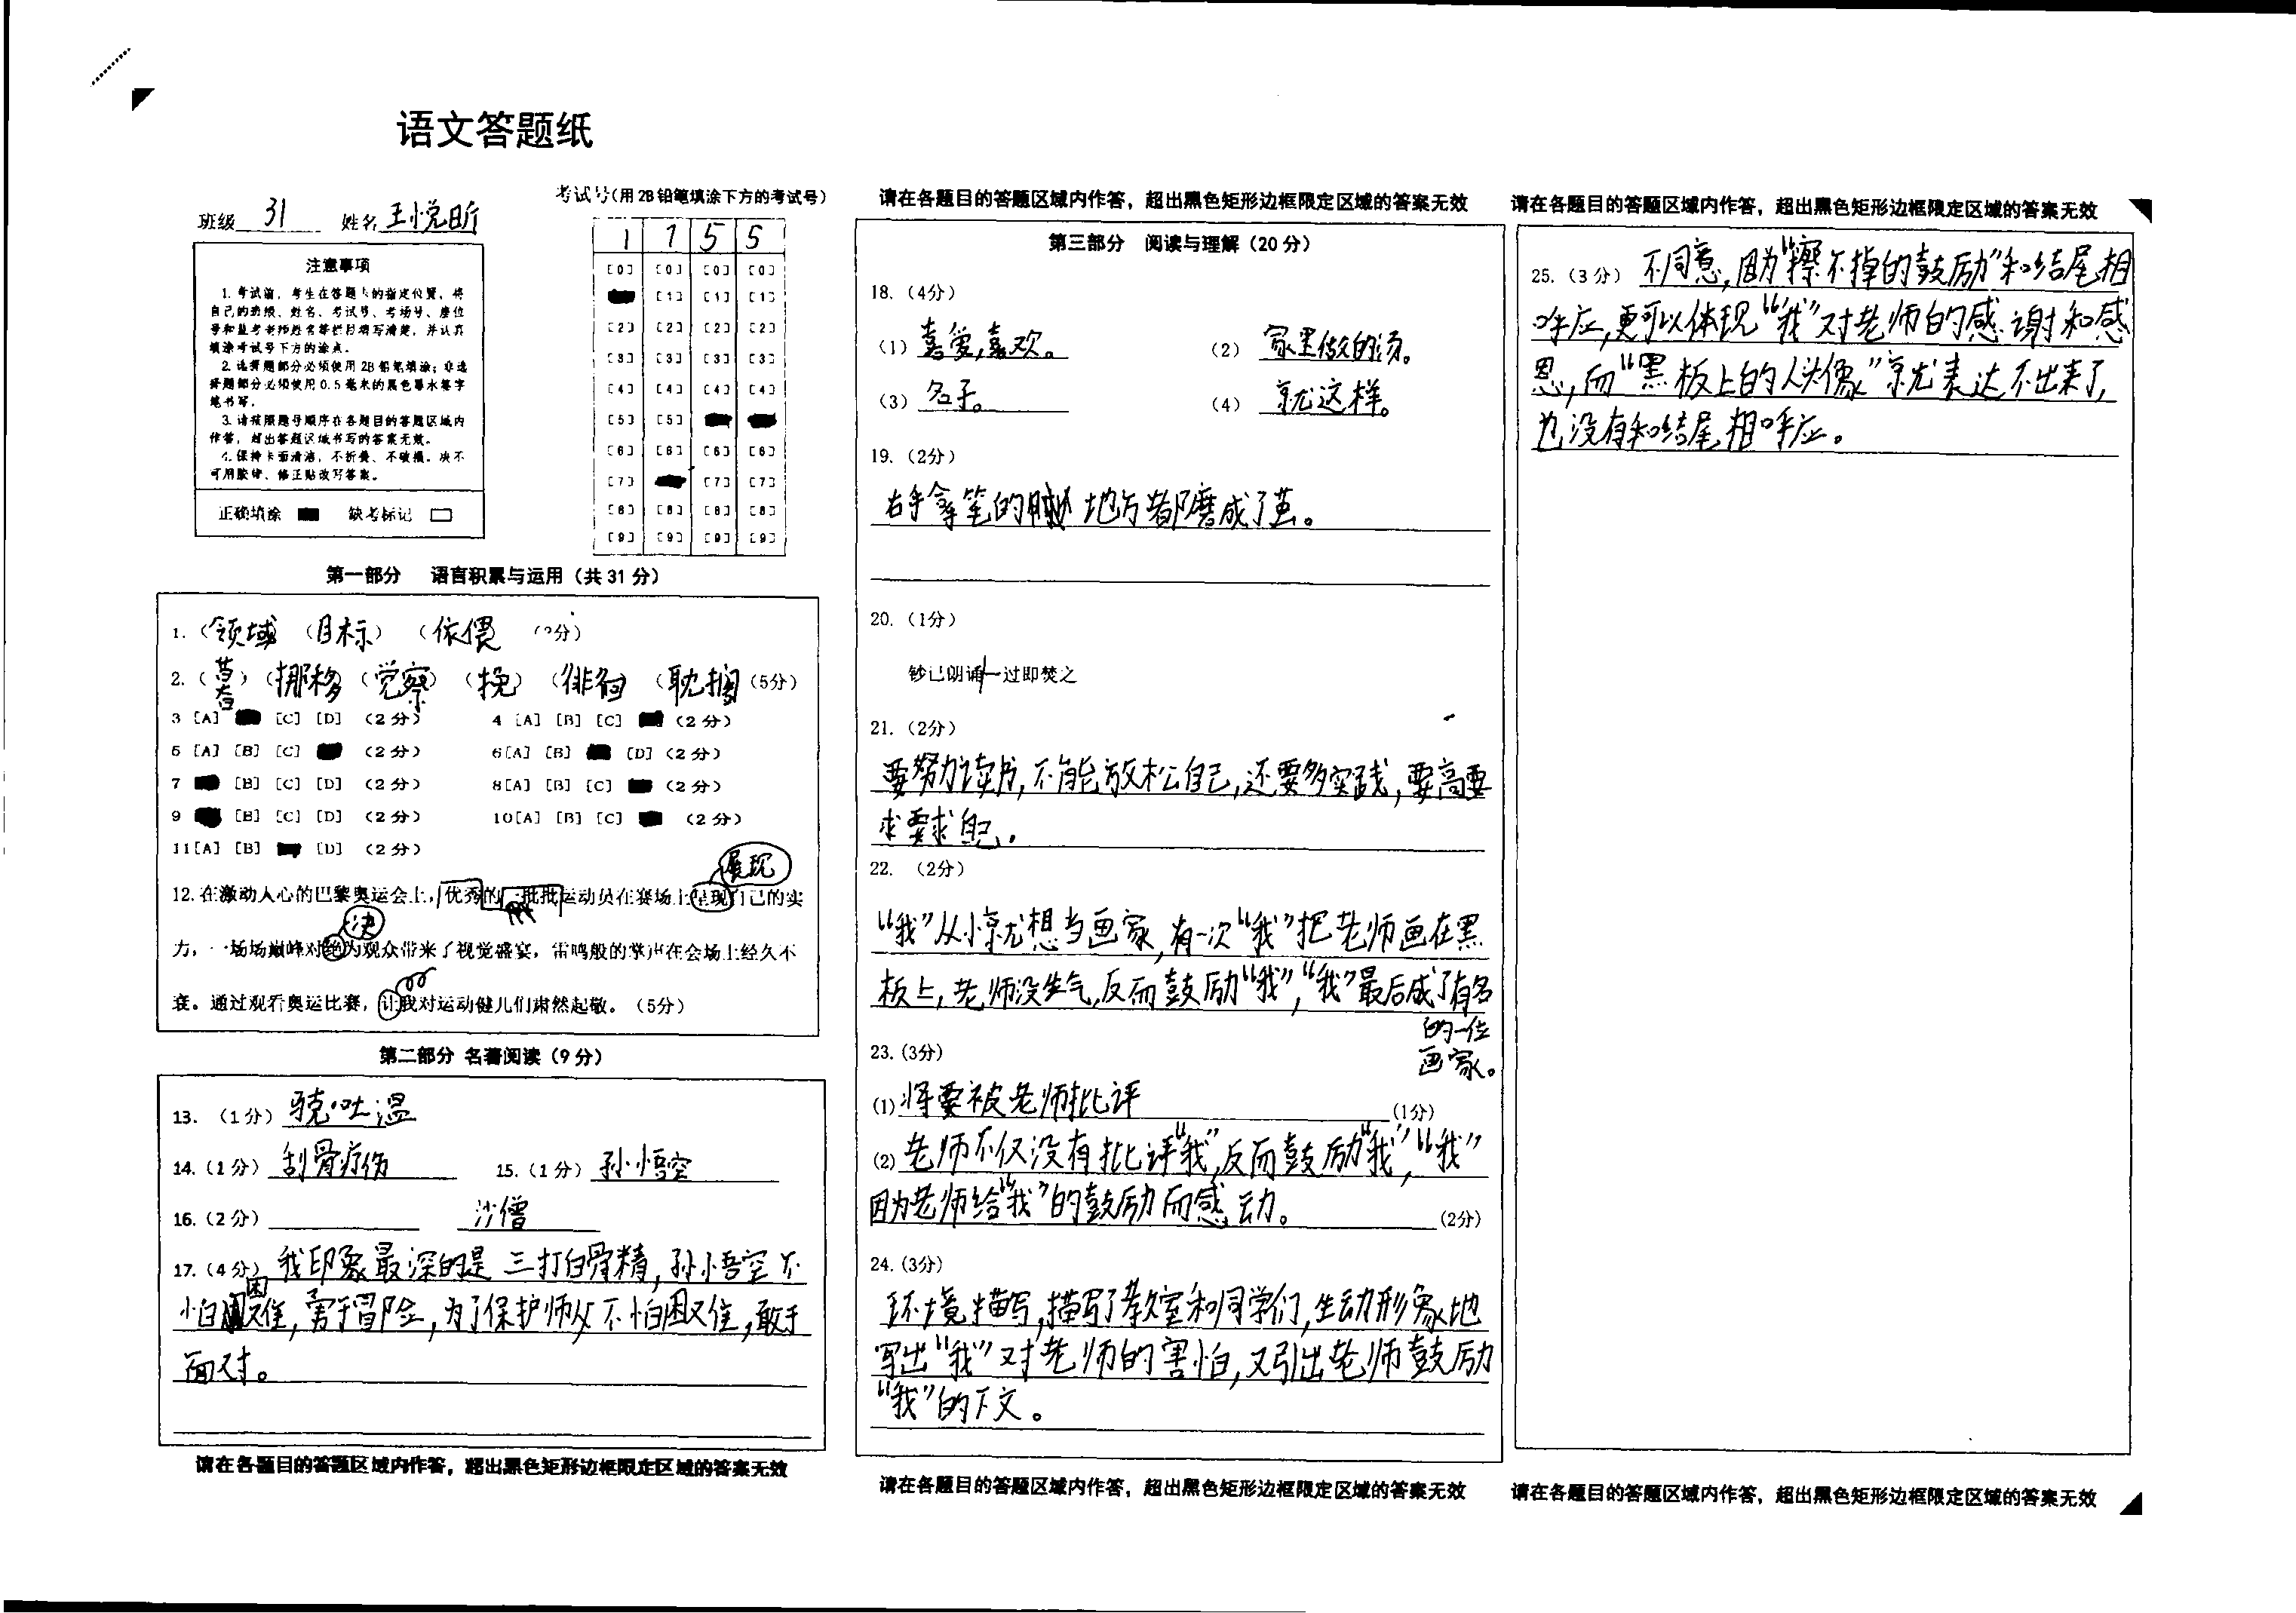 语文答题纸
班级 31 姓名 王悦昕
考试号(用2B铅笔填涂下方的考试号)
1 7 5 5
[0] [0] [0] [0]
[1] [1] [1]
[2] [2] [2] [2]
[3] [3] [3] [3]
[4] [4] [4] [4]
[5] [5]
[6] [6] [6] [6]
[7] [7] [7]
[8] [8] [8] [8]
[9] [9] [9] [9]
注意事项
1. 考试前,考生在答题卡的指定位置,将
自己的班级、姓名、考试号、考场号、座位
号和监考老师姓名等栏目填写清楚,并认真
填涂考试号下方的涂点。
2. 选择题部分必须使用2B铅笔填涂;非选
择题部分必须使用0.5毫米的黑色墨水签字
笔书写。
3. 请按照题号顺序在各题目的答题区域内
作答,超出答题区域书写的答案无效。
4. 保持卡面清洁,不折叠、不破损。决不
可用胶带、修正贴改写答案。
正确填涂 缺考标记
第一部分 语言积累与运用(共31分)
1.(领域 (目标) (依偎 分)
2.( ) (挪移 (觉察) (挽) (徘徊 (耽搁 (5分)
3 [A] [C] [D] (2分) 4 [A] [B] [C] (2分)
5 [A] [B] [C] (2分) 6[A] [B] [D] (2分)
7 [B] [C] [D] (2分) 8[A] [B] [C] (2分)
9 [B] [C] [D] (2分) 10[A] [B] [C] (2分)
11[A] [B] [D] (2分)
展现
12.在激动人心的巴黎奥运会上,优秀的一批批运动员在赛场上呈现自己的实
决
力,一场场巅峰对绝为观众带来了视觉盛宴,雷鸣般的掌声在会场上经久不
衰。通过观看奥运比赛,让我对运动健儿们肃然起敬。(5分)
第二部分 名著阅读(9分)
13. (1分) 骆·吐温
14. (1分) 刮骨疗伤 15. (1分) 孙悟空
16. (2分) 沙僧
17. (4分) 我印象最深的是三打白骨精,孙悟空不
怕困难,害于冒险,为了保护师父不怕困难,敢于
面对。
请在各题目的答题区域内作答,超出黑色矩形边框限定区域的答案无效
请在各题目的答题区域内作答,超出黑色矩形边框限定区域的答案无效
第三部分 阅读与理解(20分)
18. (4分)
(1) 喜爱,喜欢。 (2) 家里做的汤。
(3) 名子。 (4) 就这样。
19. (2分)
右手拿笔的地方都磨成了茧。
20. (1分)
钞已朗诵一过即焚之
21. (2分)
要努力读书,不能放松自己,还要多实践,要高要
求要求自己。
22. (2分)
“我”从小就想当画家,有一次“我”把老师画在黑
板上,老师没生气,反而鼓励“我”,“我”最后成了有名
的一位
画家。
23. (3分)
(1) 将要被老师批评 (1分)
(2) 老师不仅没有批评“我”,反而鼓励“我”,“我”
因为老师给“我”的鼓励而感动。 (2分)
24. (3分)
环境描写,描写了教室和同学们,生动形象地
写出“我”对老师的害怕,又引出老师鼓励
“我”的下文。
请在各题目的答题区域内作答,超出黑色矩形边框限定区域的答案无效
请在各题目的答题区域内作答,超出黑色矩形边框限定区域的答案无效
25. (3分) 不同意,因为“擦不掉的鼓励”和结尾相
呼应,更可以体现“我”对老师的感谢和感
恩,而“黑板上的人头像”就表达不出来了,
也没有和结尾相呼应。
请在各题目的答题区域内作答,超出黑色矩形边框限定区域的答案无效